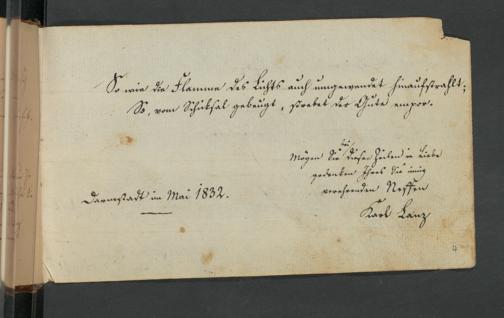 So wie die Flamme des Lichts auch umgewendet hinaufstrahlt;
So, vom Schiksal gebeugt, strebet der Gute empor.
bei
Mögen Sie diesen Zeilen in Liebe
gedenken Ihres Sie innig
verehrenden Neffen
Karl Lanz
Darmstadt im Mai 1832.
4